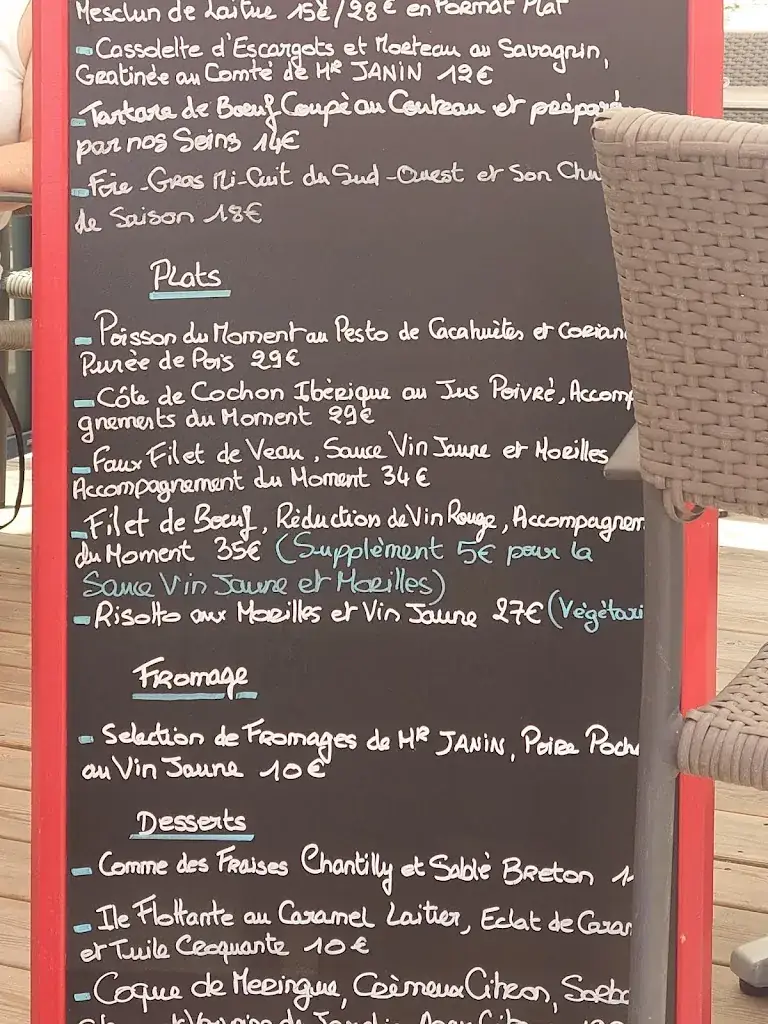 Mesclun de Laitue 15€/28€ en Format Plat
- Cassolette d'Escargots et Morteau au Savagnin,
Gratinée au Comté de MR JANIN 12€
- Tartare de Boeuf Coupé au Couteau et préparé
par nos Soins 14€
- Foie-Gras Mi-Cuit du Sud-Ouest et Son Chu
de Saison 18€
Plats
- Poisson du Moment au Pesto de Cacahuètes et Corian
Purée de Pois 29€
- Côte de Cochon Ibérique au Jus Poivré, Accomp
gnements du Moment 29€
- Faux Filet de Veau, Sauce Vin Jaune et Morilles
Accompagnement du Moment 34€
- Filet de Boeuf, Réduction de Vin Rouge, Accompagnem
du Moment 35€ (Supplément 5€ pour la
Sauce Vin Jaune et Morilles)
- Risotto aux Morilles et Vin Jaune 27€ (Végétari
Fromage
- Selection de Fromages de MR JANIN, Poire Poch
au Vin Jaune 10€
Desserts
- Comme des Fraises Chantilly et Sablé Breton 1
- Ile Flottante au Caramel Laitier, Eclat de Caram
et Tuile Croquante 10€
- Coque de Meringue, Crèmeux Citron, Sorbe